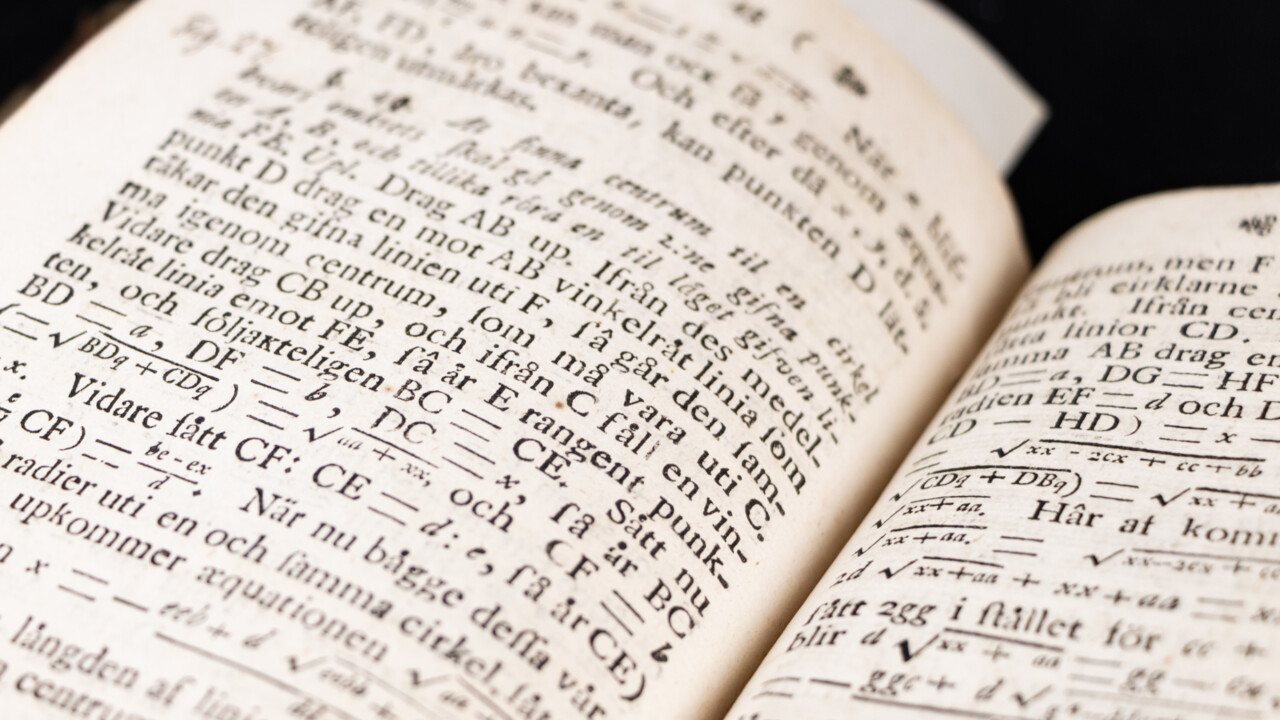 När x blif.
man ock få y genom æqua-
Och efter då x, y, d, &,
AF, FD, åro bekanta, kan punkten D låt-
teligen utmårkas.
§. 40. At finna centrum til en cirkel
hvars omkrets ſkal gå genom 2:ne gifna punk-
ter A, B, och tillika rôra en til låget gifven li-
nie FE. Upl. Drag AB up. Ifrån des medel-
punkt D drag en mot AB vinkelråt linia ſom
råkar den gifna linien uti F, ſå går den ſam-
ma igenom centrum, ſom må vara uti C.
Vidare drag CB up, och ifrån C fåll en vin-
kelråt linia emot FE, ſå år E tangent punk-
ten, och fôljakteligen BC = CE. Sått nu
BD = a, DF = b, DC = x, ſå år BC
(=√BDq + CDq) = √aa + xx, och CF = b
x. Vidare ſått CF: CE = d: e, ſå år CE)
CF) = be - ex / d. När nu bågge deſſa vår
radier uti en och ſamma cirkel, ſår
upkommer æquationen
x = — eeb + d √
långden af lini
centrum
men F
bli cirklarne
punkt. Ifrån cen
linior CD.
AB drag en
BD = a, DG = HF
radien EF = d och D
CD — HD) = x —
= √xx - 2cx + cc + bb
√CDq + DBq) = √xx + a
√xx + aa. Hår af kom
√xx + aa. = √xx - 2cx + cc
2d √xx + aa + xx + aa = x
ſått 2gg i ſtållet fôr cc +
blir d √xx + aa = gg — cx
ggc + d √